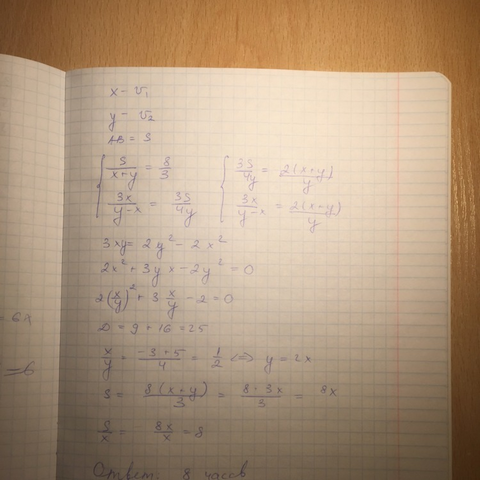 x - v₁
y - v₂
AB = S
{ S/(x+y) = 8/3   { 3S/4y = 2(x+y)/y
3x/(y-x) = 3S/4y   3x/(y-x) = 2(x+y)/y
3xy = 2y² - 2x²
2x² + 3yx - 2y² = 0
= 6x
2(x/y)² + 3 x/y - 2 = 0
D = 9 + 16 = 25
x/y = (-3+5)/4 = 1/2 <=> y = 2x
= 6
S = 8(x+y)/3 = 8·3x/3 = 8x
S/x = 8x/x = 8
Ответ: 8 часов